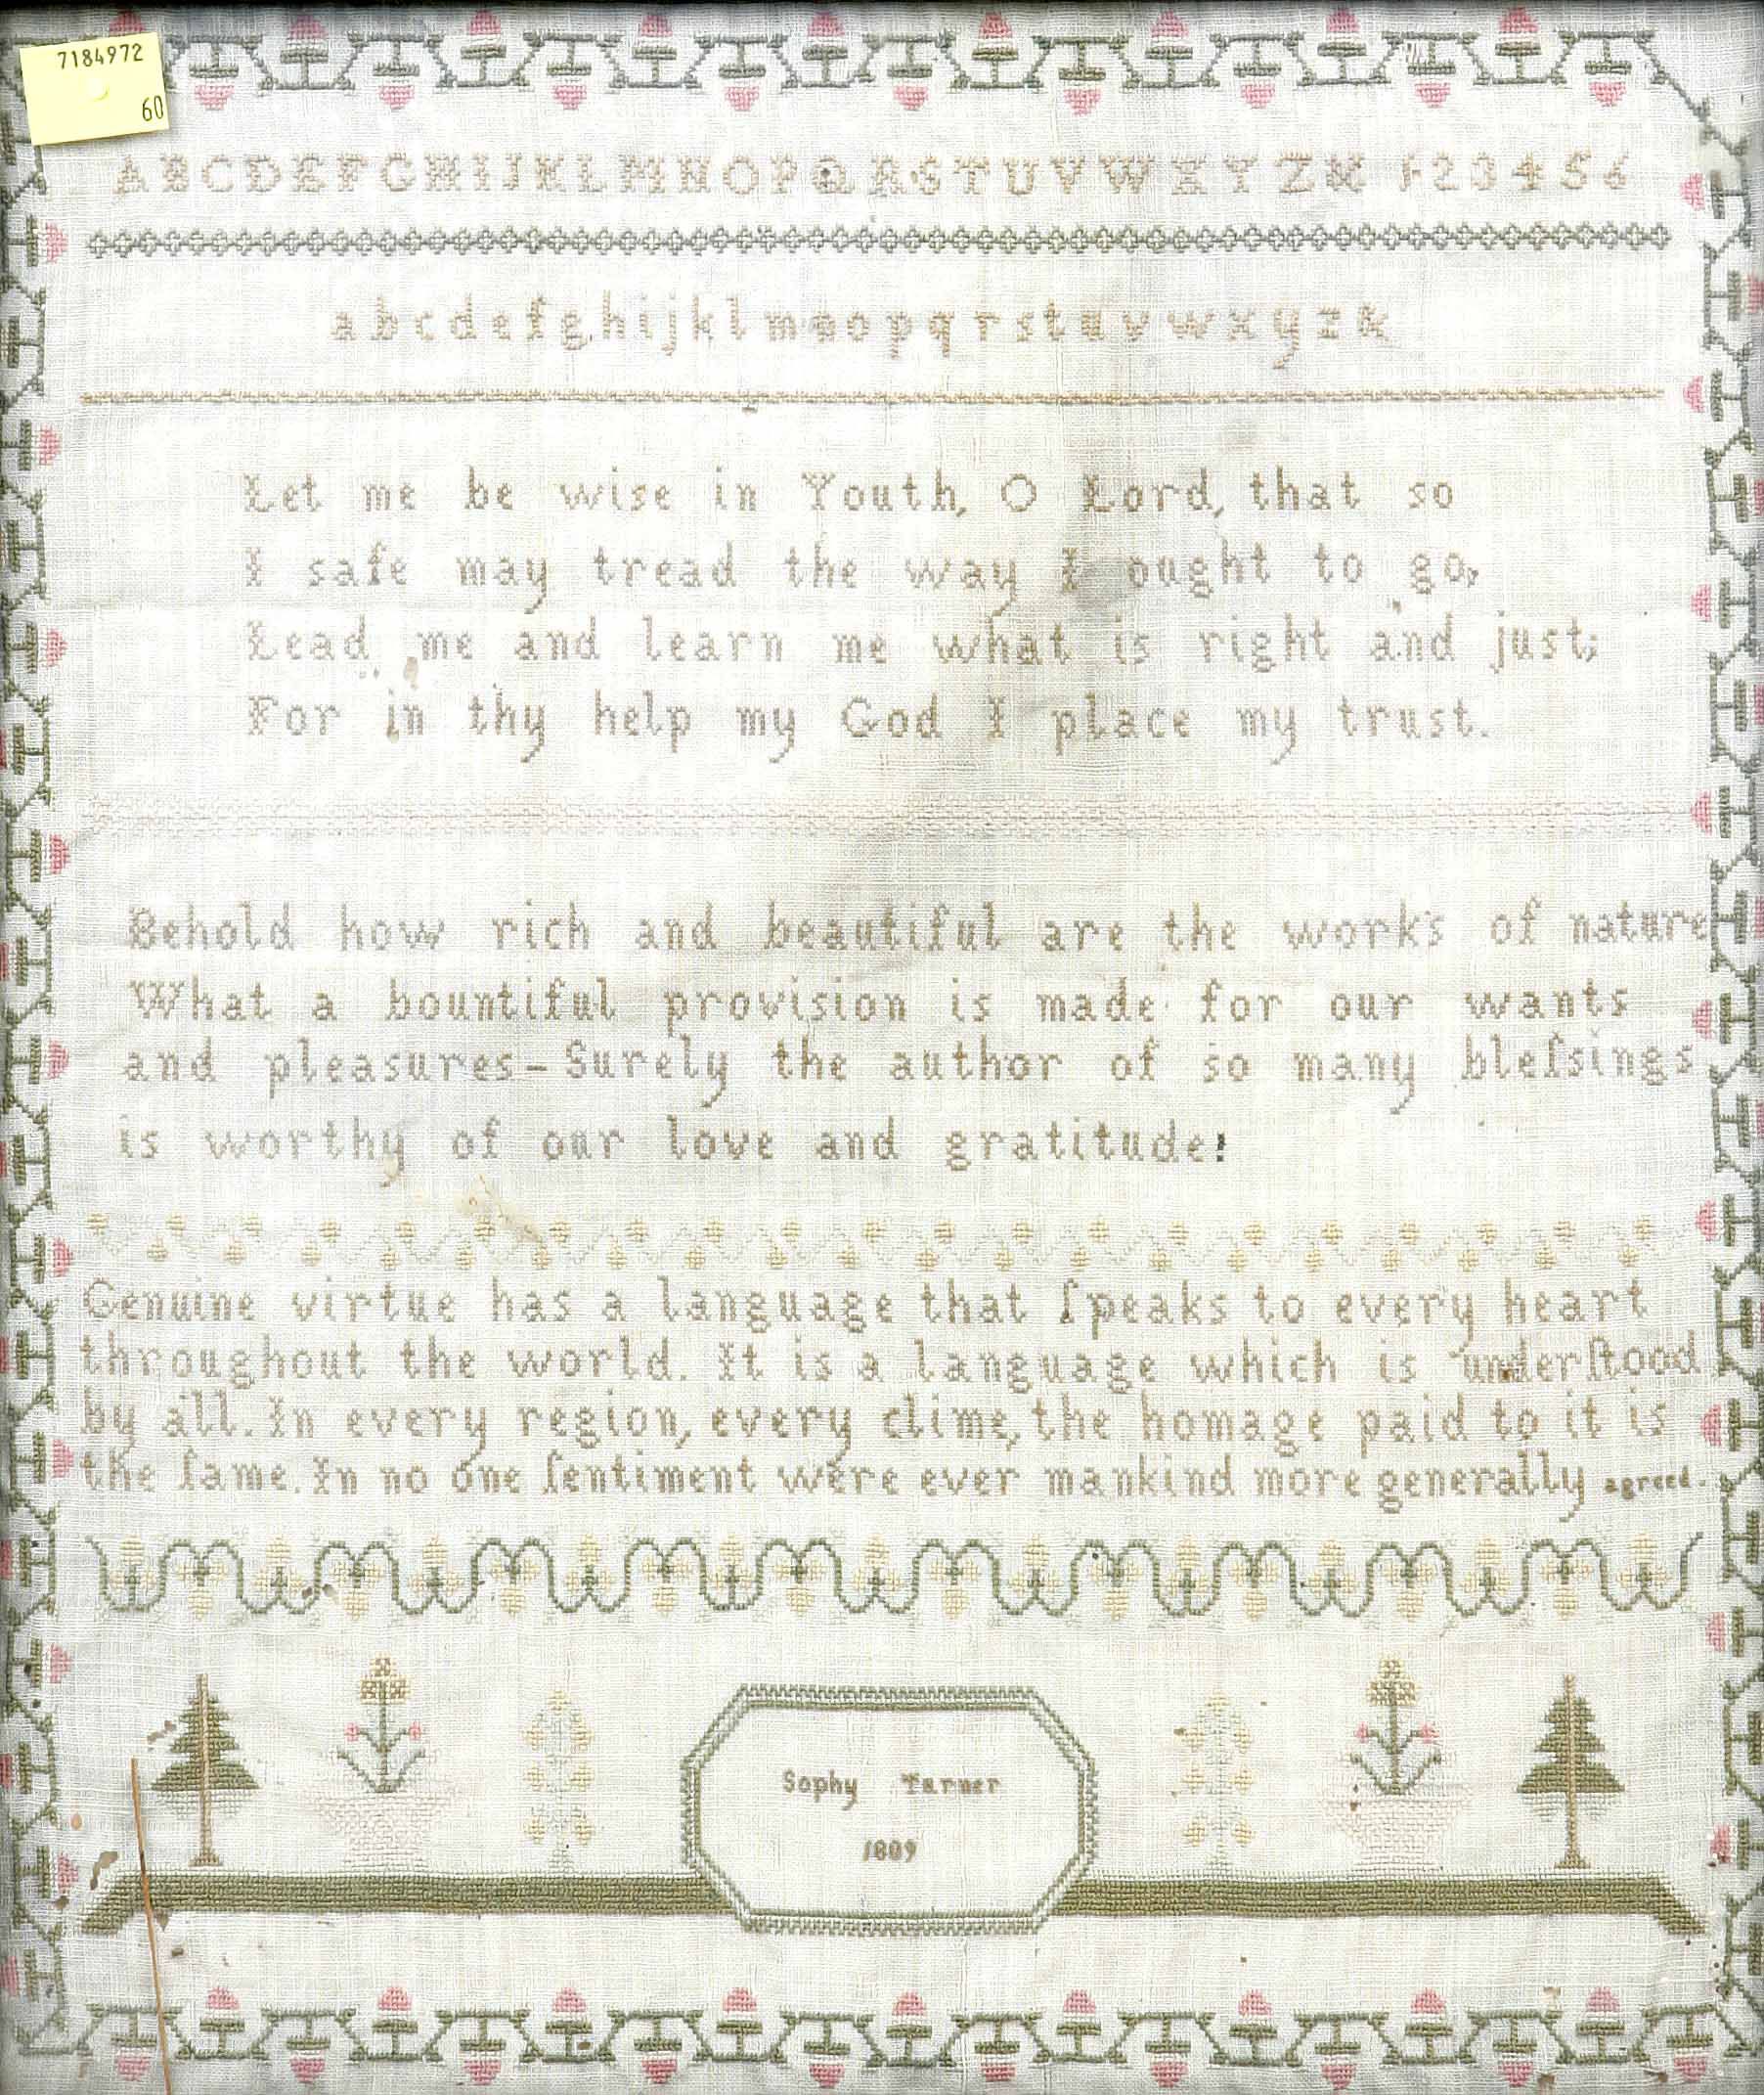 7184972
60
A B C D E F G H I J K L M N O P Q R S T U V W X Y Z & 1 2 3 4 5 6
a b c d e f g h i j k l m n o p q r s t u v w x y z &
Let me be wise in Youth, O Lord, that so
I safe may tread the way I ought to go,
Lead me and learn me what is right and just;
For in thy help my God I place my trust.
Behold how rich and beautiful are the works of nature
What a bountiful provision is made for our wants
and pleasures – Surely the author of so many bleſsings
is worthy of our love and gratitude!
Genuine virtue has a language that ſpeaks to every heart
throughout the world. It is a language which is underſtood
by all. In every region, every clime, the homage paid to it is
the ſame. In no one ſentiment were ever mankind more generally agreed.
Sophy Turner
1809